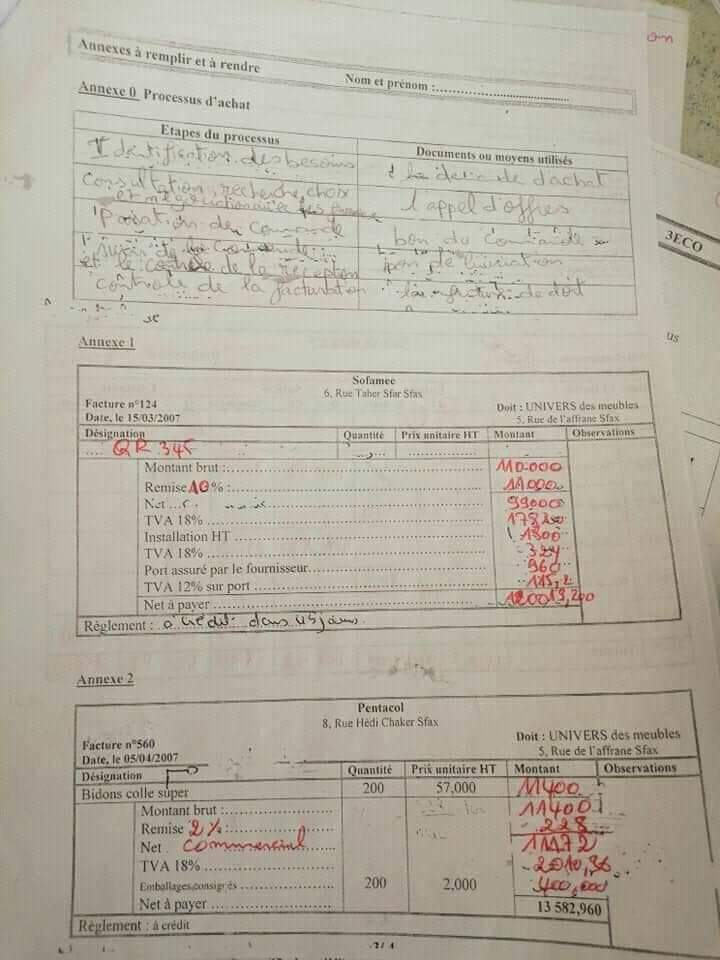 on
Annexes à remplir et à rendre
Nom et prénom :
Annexe 0 Processus d'achat
Etapes du processus Documents ou moyens utilisés
Identification des besoins d'achat
Consultation, recherche, choix
et l'appel d'offres
Commande bon du Commande
bon de
et le controle de la réception
controle de la facturation la facture de doit
3ECO
us
Annexe 1
Sofamec
6, Rue Taher Sfar Sfax
Facture n°124 Doit : UNIVERS des meubles
Date, le 15/03/2007 5, Rue de l'affrane Sfax
Désignation Quantité Prix unitaire HT Montant Observations
QR 345
Montant brut : 110.000
Remise 10 % : 11000
Net 99000
TVA 18% 178200
Installation HT 1800
TVA 18% 324
Port assuré par le fournisseur 960
TVA 12% sur port 115,2
Net à payer
Règlement : à crédit dans 45 jours
Annexe 2
Pentacol
8, Rue Hédi Chaker Sfax
Facture n°560 Doit : UNIVERS des meubles
Date, le 05/04/2007 5, Rue de l'affrane Sfax
Désignation Quantité Prix unitaire HT Montant Observations
Bidons colle super 200 57,000 11400
Montant brut : 11400
Remise 2% : 228
Net commercial 11172
TVA 18% 2010,96
Emballages consignés 200 2,000 400,000
Net à payer 13 582,960
Règlement : à crédit